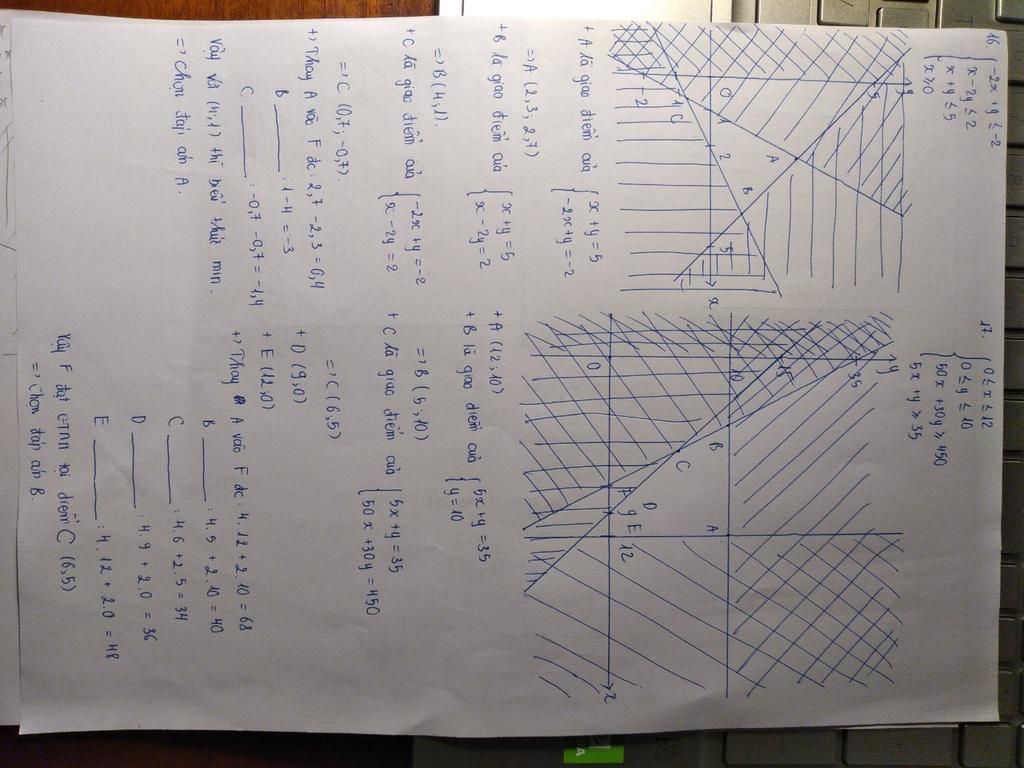 16. { -2x + y ≤ -2
x - 2y ≤ 2
x + y ≤ 5
x ≥ 0
y
5
O
1
A
2
B
5
x
-1
C
-2
+ A là giao điểm của { x + y = 5
-2x + y = -2
=> A (2,3; 2,7)
+ B là giao điểm của { x + y = 5
x - 2y = 2
=> B (4;1).
+ C là giao điểm của { -2x + y = -2
x - 2y = 2
=> C (0,7; -0,7).
+) Thay A vào F đc: 2,7 - 2,3 = 0,4
B : 1 - 4 = -3
C : -0,7 - 0,7 = -1,4
Vậy với (4;1) thì biểu thức min.
=> Chọn đáp án A.
17. { 0 ≤ x ≤ 12
0 ≤ y ≤ 10
50x + 30y ≥ 450
5x + y ≥ 35
y
35
15
10
B
A
C
D
E
O
7
9
12
x
+ A (12; 10)
+ B là gao điểm của { 5x + y = 35
y = 10
=> B (5; 10)
+ C là giao điểm của { 5x + y = 35
50x + 30y = 450
=> C (6;5)
+ D (9;0)
+ E (12;0)
+) Thay A vào F đc: 4.12 + 2.10 = 68
B : 4.5 + 2.10 = 40
C : 4.6 + 2.5 = 34
D : 4.9 + 2.0 = 36
E : 4.12 + 2.0 = 48
Vậy F đạt GTNN tại điểm C (6;5)
=> Chọn đáp án B.